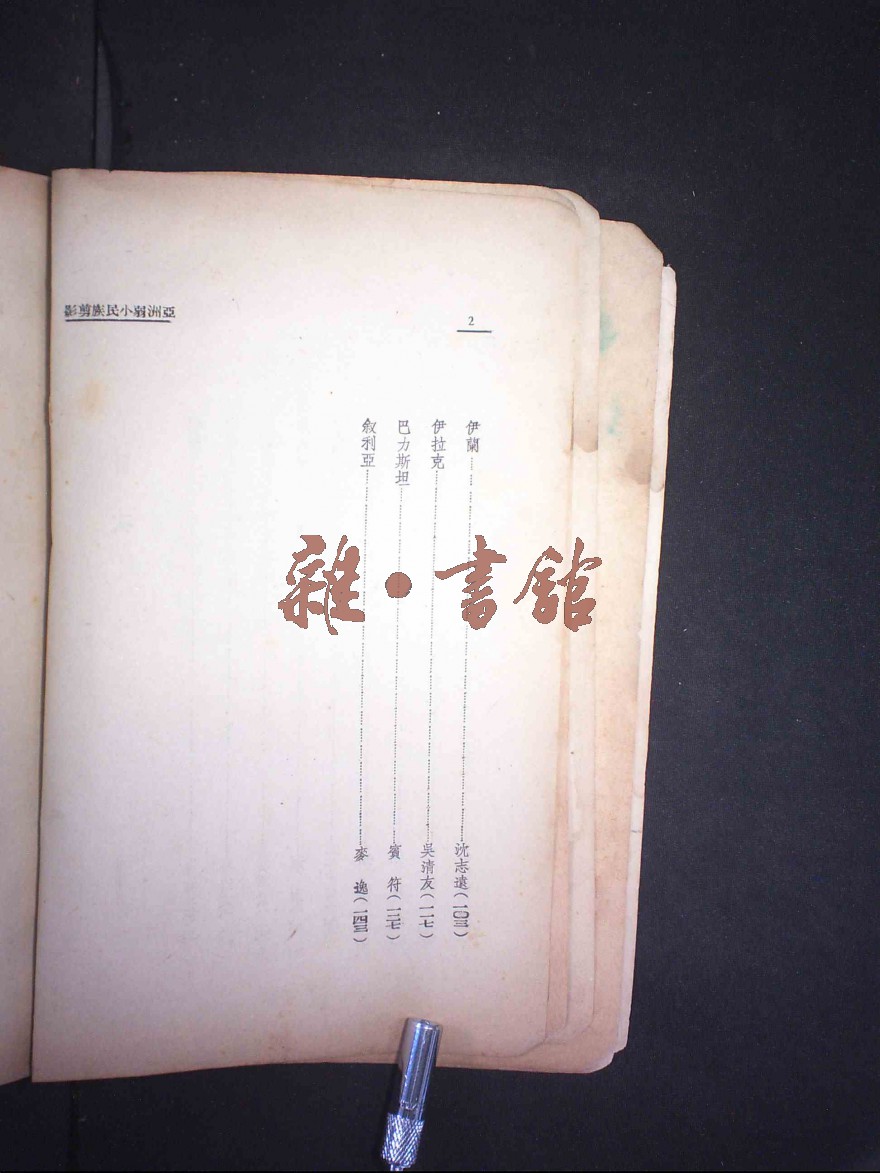 亞洲弱小民族剪影
2
伊蘭……沈志遠(一〇三)
伊拉克……吳清友(一一七)
巴力斯坦……賓符(一二七)
敘利亞……麥逸(一四三)
雜·書館